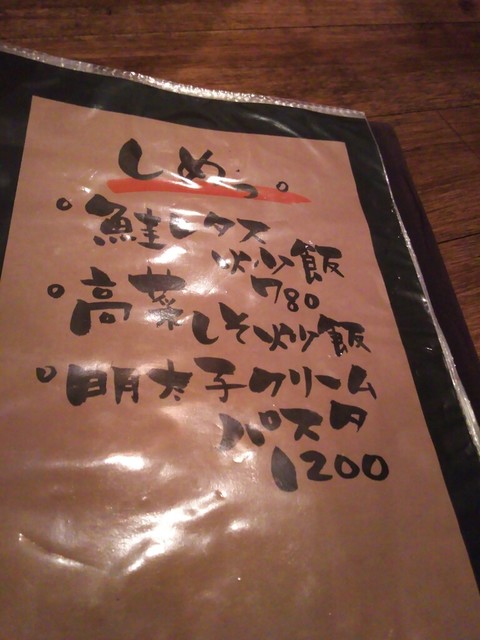 しめっ。
鮭レタス
炒飯
780
高菜しそ炒飯
明太子クリーム
パスタ
1200